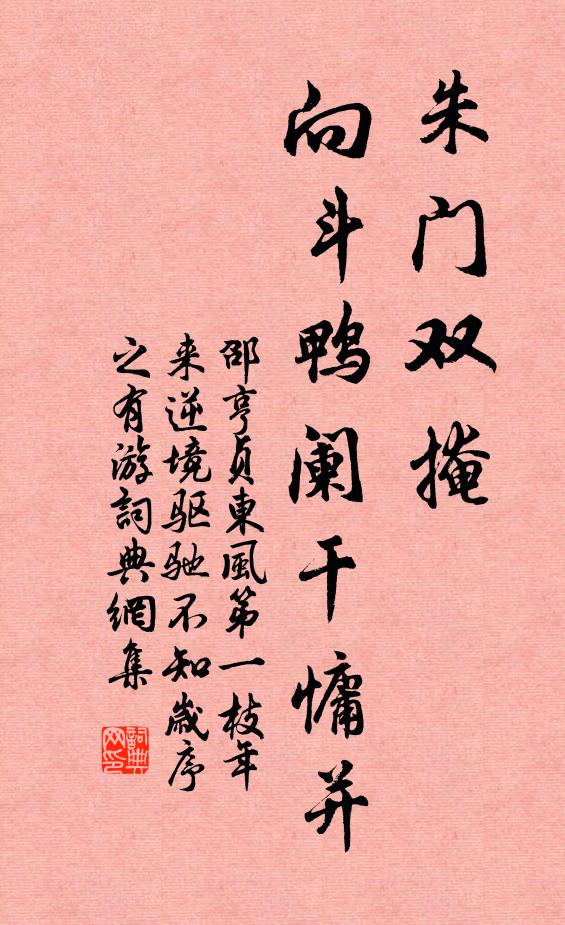 朱门双掩
向斗鸭阑干慵并
邵亨貞東風第一枝年
来逆境驱驰不知歲序
之有游詞典網集
詞典
网印